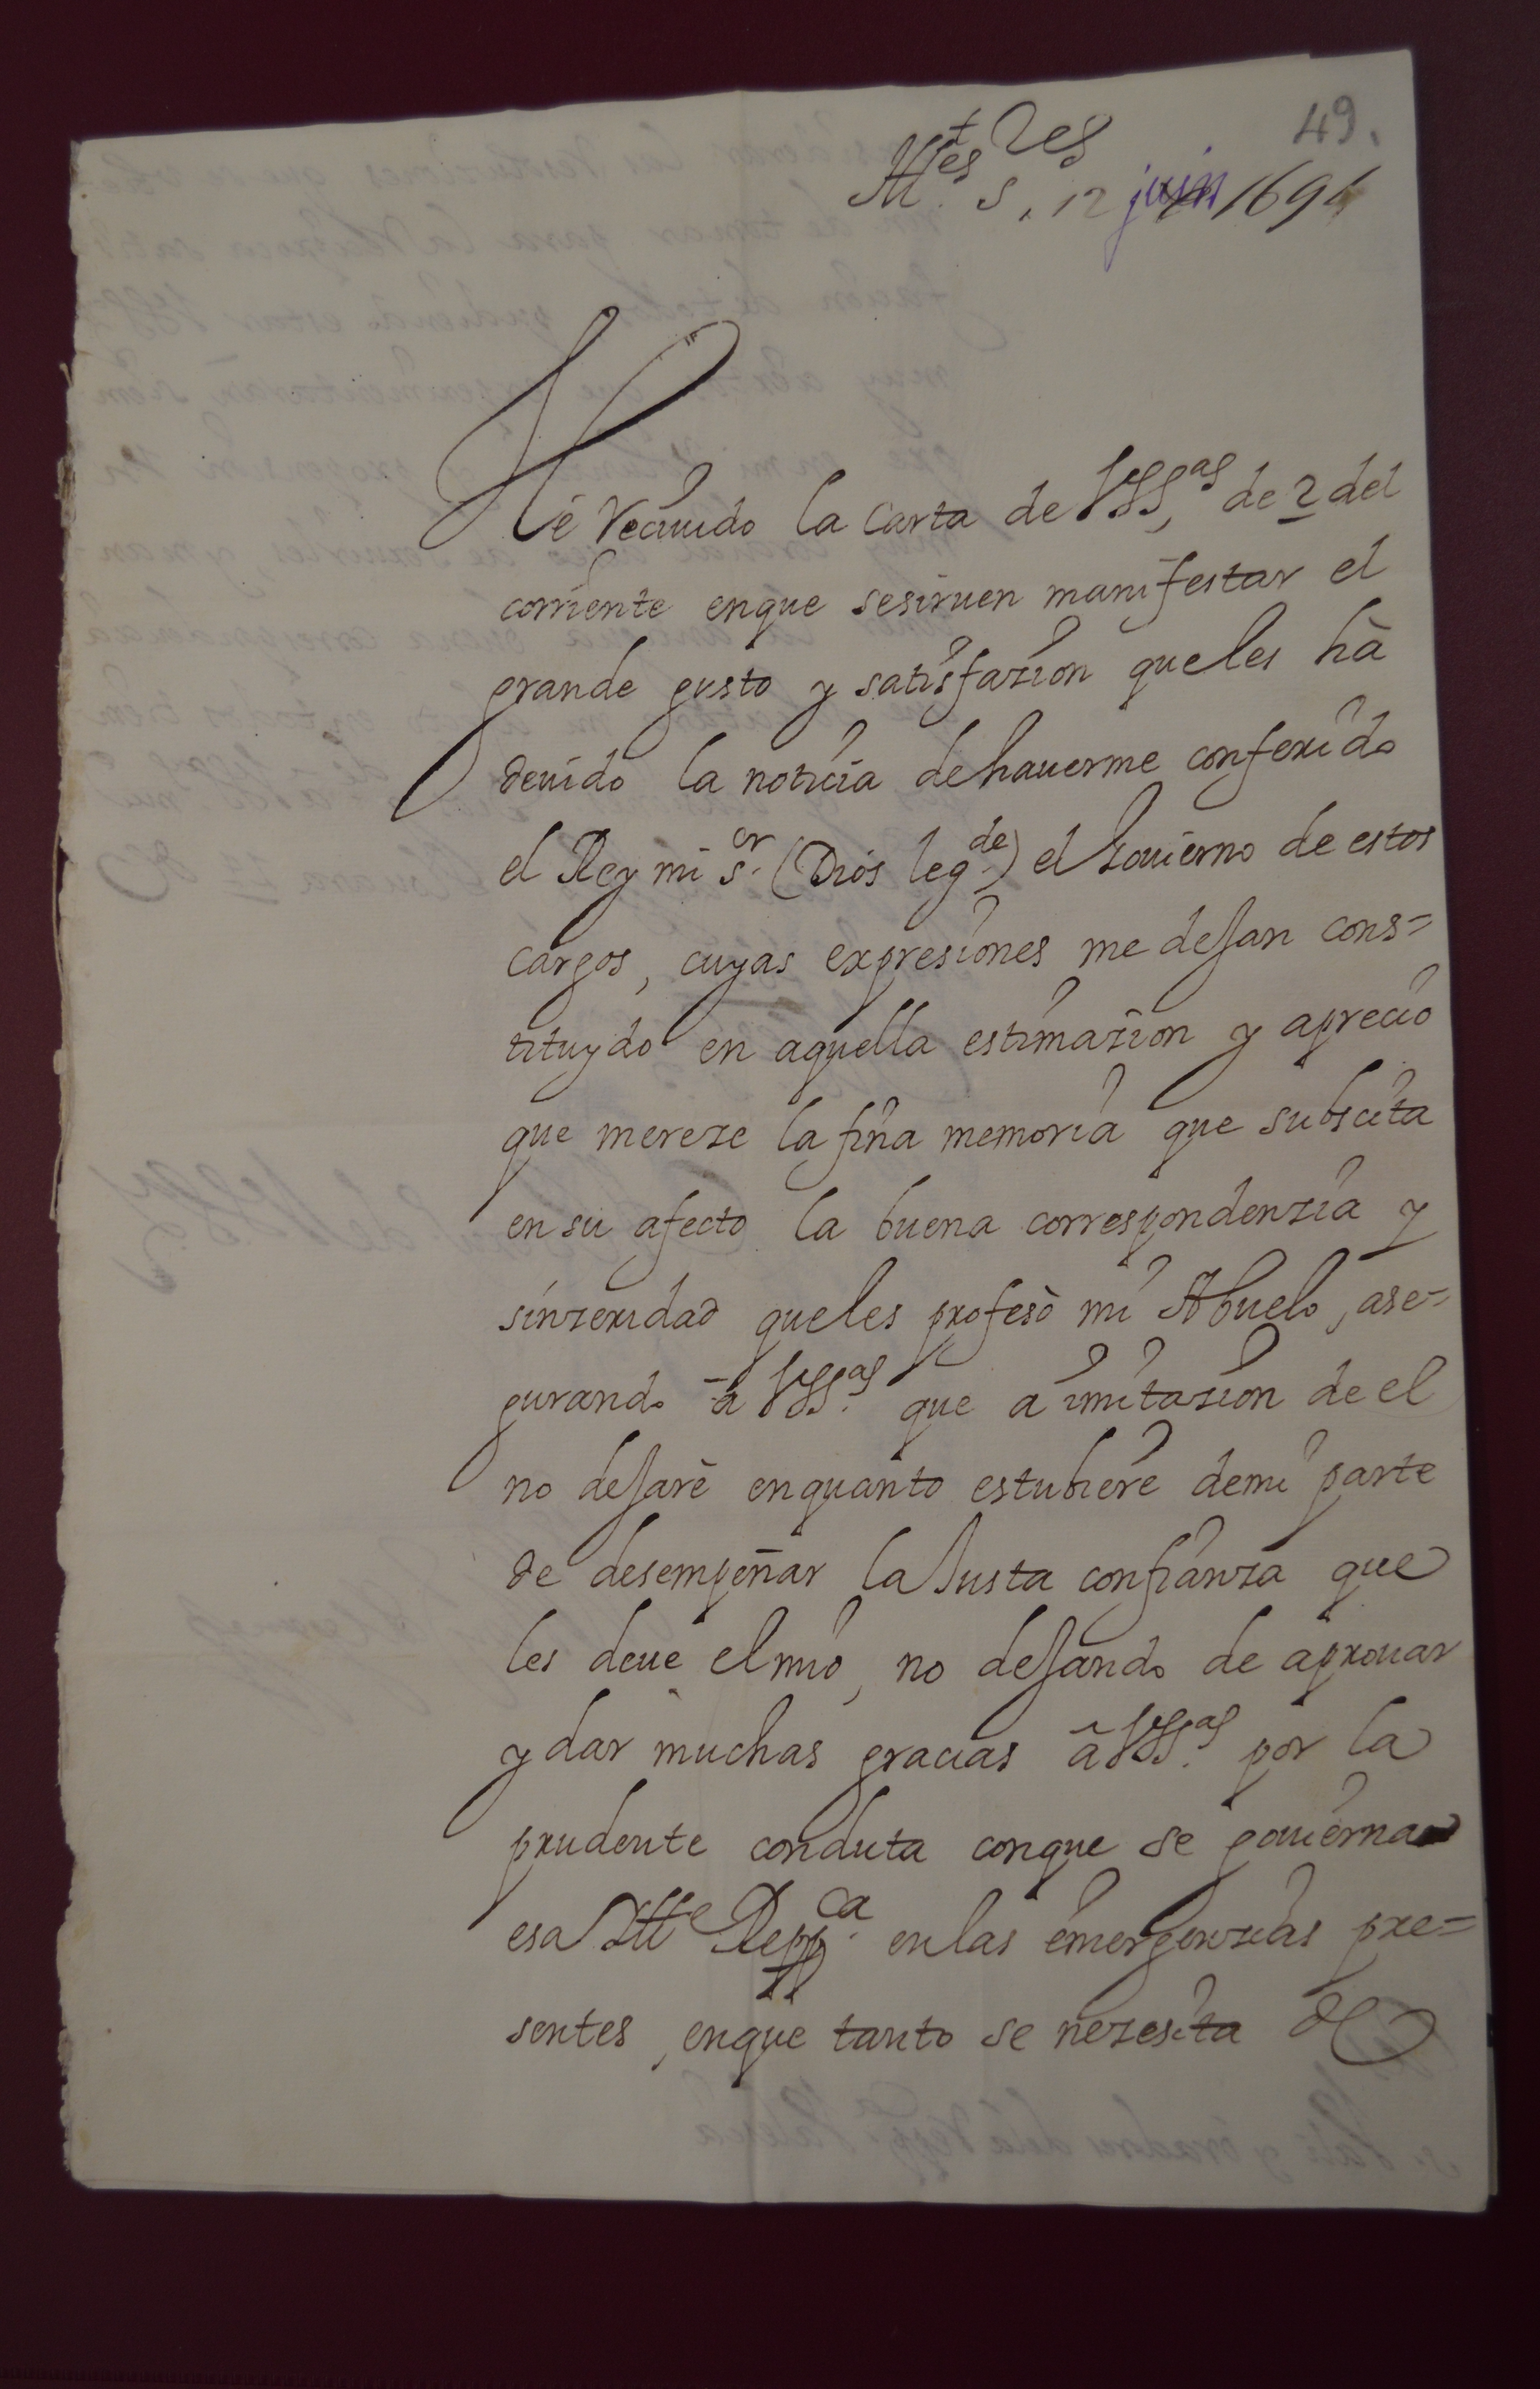 49.
Ill.es S.res
12 juin 1691
Hé reciuido la Carta de VSS.as, de 2 del
corriente enque sesiruen manifestar el
grande gusto y satisfazion queles hà
deuido la noticia dehauerme conferido
el Rey mi s.or (Dios leg.de) el Gouierno de estos
cargos, cuyas expresiones me dejan cons=
tituydo en aquella estimazion y aprecio
que mereze la fina memoria que subscita
en su afecto la buena correspondenzia y
sinzeridad queles profesò mi Abuelo, ase=
gurando à VSS.as que a imitazion de el
no dejarè enquanto estubiere demi parte
de desempeñar la Justa confianza que
les deue elmio, no dejando de aprouar
y dar muchas gracias â VSS.as por la
prudente conduta conque se gouierna
esa Ill.e Repp.ca enlas emergenzias pre=
sentes, enque tanto se nezesita de